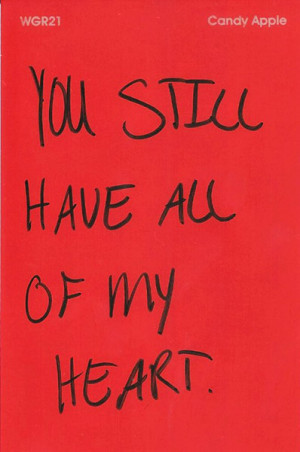 WGR21 Candy Apple
YOU STILL
HAVE ALL
OF MY
HEART.